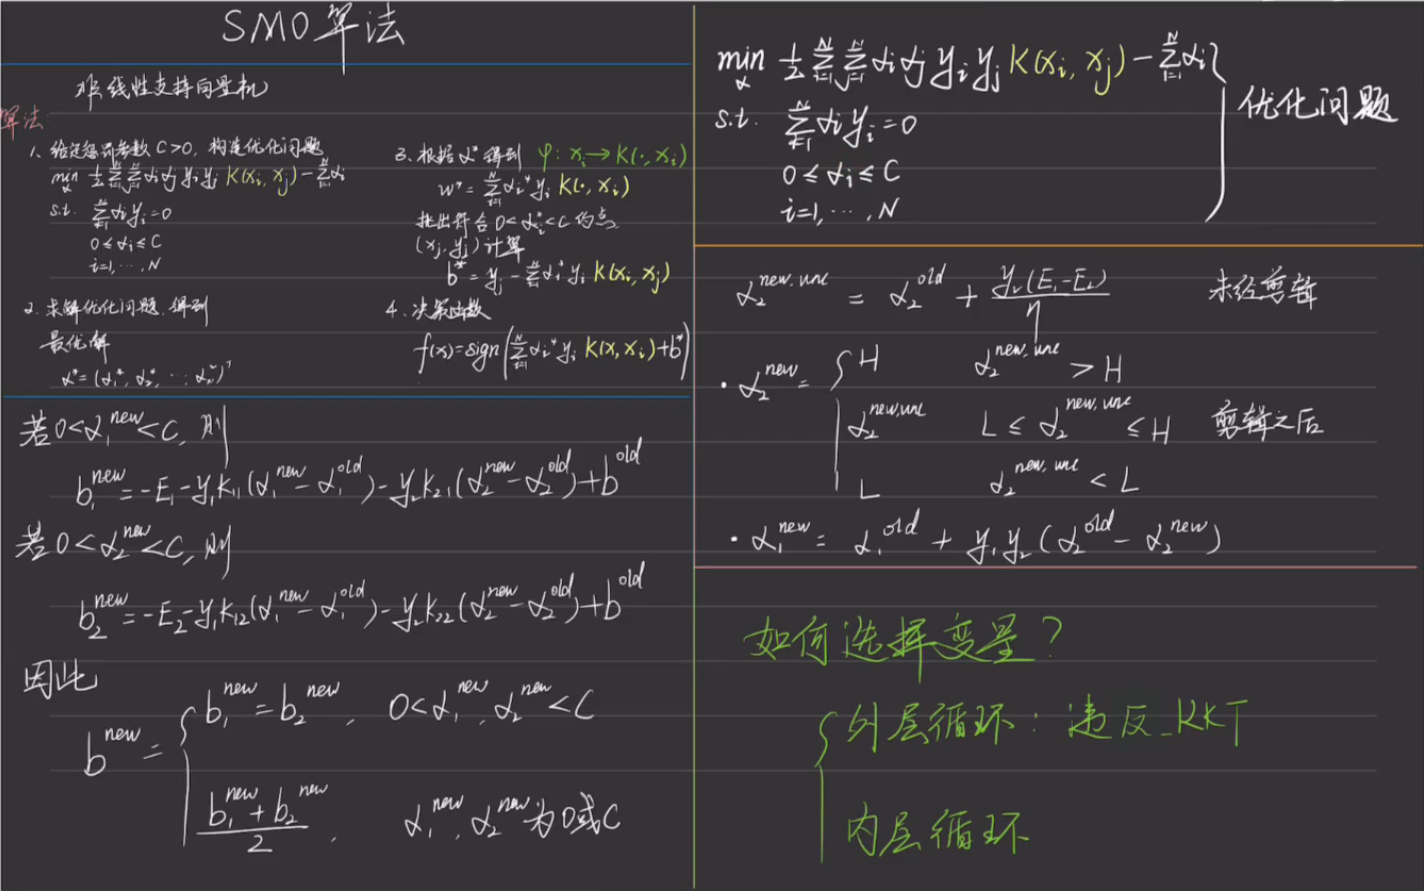 SMO算法
非线性支持向量机
算法:
1、给定惩罚参数 C>0, 构造优化问题
min_α ½ Σ_{i=1}^N Σ_{j=1}^N αi αj yi yj K(xi, xj) − Σ_{i=1}^N αi
s.t. Σ_{i=1}^N αi yi = 0
0 ≤ αi ≤ C
i=1, ···, N
2、求解优化问题, 得到
最优解
α* = (α1*, α2*, ···, αN*)^T
3、根据 α* 得到 φ: xi → K(·, xi)
w* = Σ_{i=1}^N αi* yi K(·, xi)
挑出符合 0 < αi* < C 的点
(xj, yj) 计算
b* = yj − Σ_{i=1}^N αi* yi K(xi, xj)
4、决策函数
f(x) = sign(Σ_{i=1}^N αi* yi K(x, xi) + b*)
若 0 < α1^new < C, 则
b1^new = −E1 − y1 k11 (α1^new − α1^old) − y2 k21 (α2^new − α2^old) + b^old
若 0 < α2^new < C, 则
b2^new = −E2 − y1 k12 (α1^new − α1^old) − y2 k22 (α2^new − α2^old) + b^old
因此
b^new = { b1^new = b2^new , 0 < α1^new, α2^new < C
(b1^new + b2^new)/2 , α1^new, α2^new 为 0或C
min_α ½ Σ_{i=1}^N Σ_{j=1}^N αi αj yi yj K(xi, xj) − Σ_{i=1}^N αi
s.t. Σ_{i=1}^N αi yi = 0
0 ≤ αi ≤ C
i=1, ···, N
优化问题
α2^{new,unc} = α2^old + y2(E1−E2)/η 未经剪辑
· α2^new = { H α2^{new,unc} > H
α2^{new,unc} L ≤ α2^{new,unc} ≤ H 剪辑之后
L α2^{new,unc} < L
· α1^new = α1^old + y1 y2 (α2^old − α2^new)
如何选择变量?
{ 外层循环: 违反_KKT
内层循环